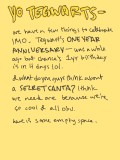 YO TEGWARTS-
we have a few things to celebrate
IMO. Tegwart's ONE YEAR
ANNIVERSARY - was a while
ago but chance's 1yr birthday
is in 4 days lol.
& what do you guys think about
a SECRET SANTA? I think
we need one because we're
so cool & all obv.
have some empty space.